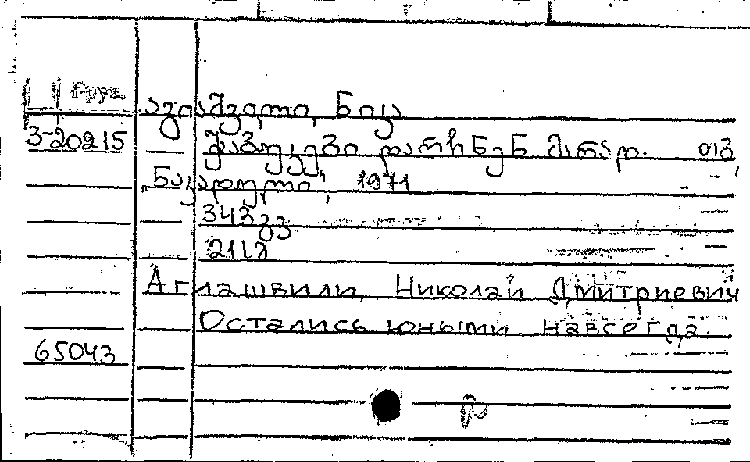 Груз.
აგიაშვილი, ნიკა
3-20215 ჭაბუკები დარჩნენ მარად. თბ,
„ნაკადული", 1971
343გვ
21լ
Агиашвили, Николай Дмитриевич
Остались юными навсегда.
65043